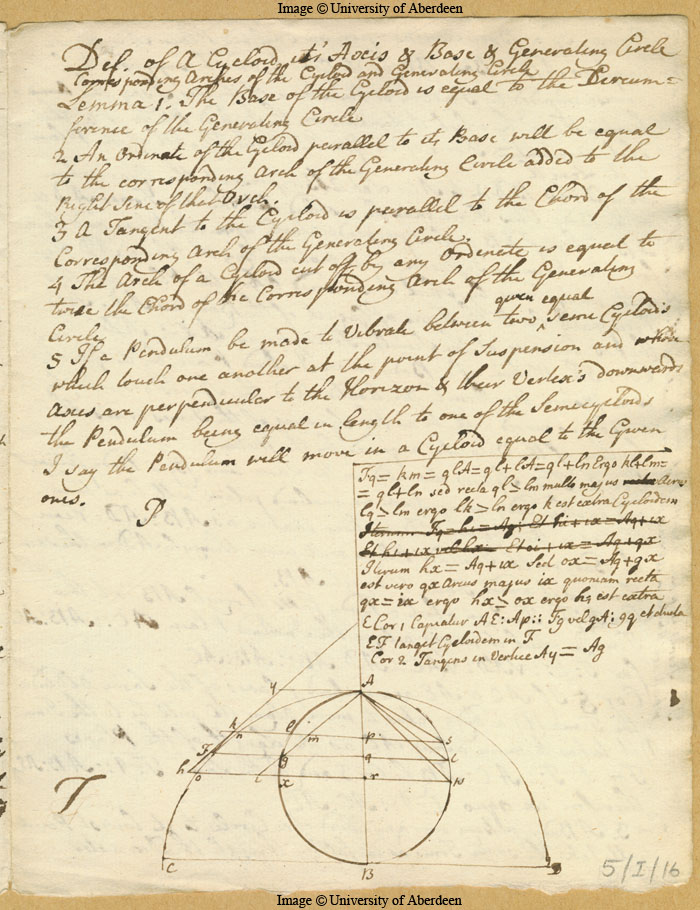 Image © University of Aberdeen
Def. of A Cycloid its Axis & Base & Generating Circle
Corresponding Arches of the Cycloid and Generating Circle
Lemma 1. The Base of the Cycloid is equal to the Circum=
ference of the Generating Circle
2 An Ordinate of the Cycloid parallel to its Base will be equal
to the corresponding Arch of the Generating Circle added to the
Right Sine of that Arch.
3 A Tangent to the Cycloid is parallel to the Chord of the
Corresponding Arch of the Generating Circle.
4 The Arch of a Cycloid cut off by any Ordinate is equal to
twice the Chord of the Corresponding Arch of the Generating
Circle
given equal
5 If a Pendulum be made to Vibrate between two semeCycloids
which touch one another at the point of Suspension and whose
Axes are perpendicular to the Horizon & their Vertex's downwards
the Pendulum being equal in length to one of the Semecycloids
I say the Pendulum will move in a Cycloid equal to the Gywen
ones.
P
Fq = km = glA = gl + lA = gl + ln Ergo kl + lm =
= gl + ln sed recta gl > lm multo majus
lg > lm ergo lk > ln ergo k est extra Cycloidem
Iterum Fq = h
Et hi + ix Et oi + ix = Ag + gx
Iterum hx = Ag + ix Sed ox = Ag + gx
est vero gx arcus majus ix quoniam recta
gx = ix ergo hx > ox ergo hq est extra
E Cor 1 Capiatur AE : Ap :: Fg vel gA : gq et ducta
EF tanget Cycloidem in F
Cor 2 Tangens in Vertice Ay = Ag
y
A
k
n
e
m
p
s
F
g
q
L
h
o
i
x
r
N
T
C
B
D
5/I/16
Image © University of Aberdeen